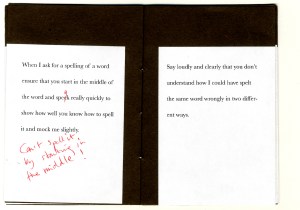 When I ask for a spelling of a word
ensure that you start in the middle of
the word and spell really quickly to
show how well you know how to spell
it and mock me slightly.
Can't spell it
by starting in
the middle!
Say loudly and clearly that you don't
understand how I could have spelt
the same word wrongly in two differ-
ent ways.